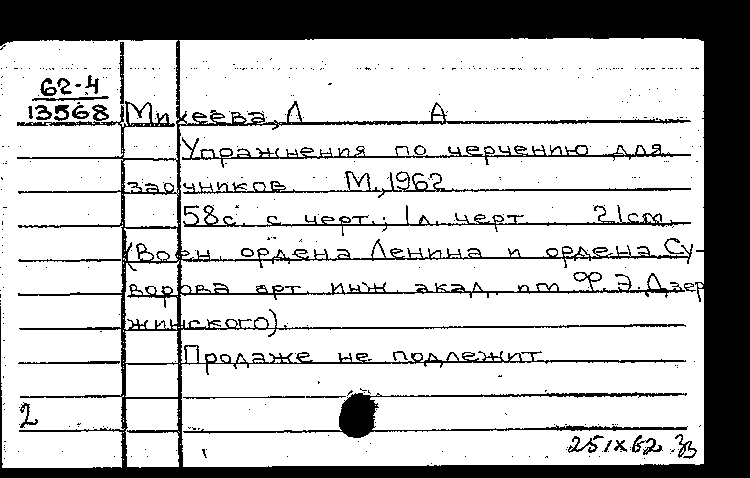 62-4
13568
Михеева, Л А
Упражнения по черчению для
заочников. М., 1962
58с. с черт.; 1л. черт 21см.
(Воен. ордена Ленина и ордена Су-
ворова арт. инж. акад. им Ф.Э.Дзер
жинского).
Продаже не подлежит
2
25 IX 62